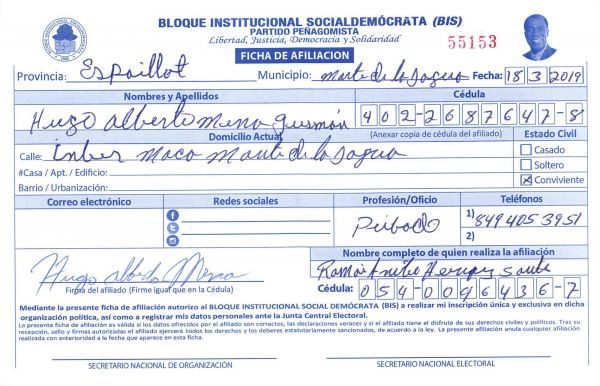 BLOQUE INSTITUCIONAL SOCIALDEMÓCRATA (BIS)
PARTIDO PEÑAGOMISTA
Libertad, Justicia, Democracia y Solidaridad
55153
FICHA DE AFILIACION
Provincia: Espaillat Municipio: Monte de la Jagua Fecha: 18 3 2019
Nombres y Apellidos Cédula
Hugo Alberto Mena Guzmán 402-2687647-8
Domicilio Actual (Anexar copia de cédula del afiliado) Estado Civil
Calle: Inber Moca Monte de la Jagua Casado
#Casa / Apt. / Edificio: Soltero
Barrio / Urbanización: Conviviente
Correo electrónico Redes sociales Profesión/Oficio Teléfonos
Privado 1) 849 405 3951
2)
Nombre completo de quien realiza la afiliación
Hugo Alberto Mena Ramón
Firma del afiliado (Firme igual que en la Cédula) Cédula: 054-0096436-7
Mediante la presente ficha de afiliación autorizo al BLOQUE INSTITUCIONAL SOCIAL DEMÓCRATA (BIS) a realizar mi inscripción única y exclusiva en dicha
organización política, así como a registrar mis datos personales ante la Junta Central Electoral.
La presente ficha de afiliación es válida si los datos ofrecidos por el afiliado son correctos, las declaraciones veraces y si el afiliado tiene el disfrute de sus derechos civiles y políticos. Tras su
recepción, sello y firmas autorizadas el afiliado ejercerá todos los derechos y los deberes estatutariamente sancionados, de acuerdo a la ley. La presente afiliación anula cualquier afiliación
realizada con anterioridad a la fecha que aparece en esta ficha.
SECRETARIO NACIONAL DE ORGANIZACIÓN SECRETARIO NACIONAL ELECTORAL